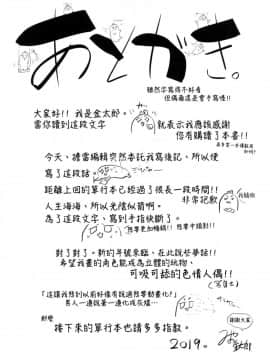 あとがき。
雖然字寫得不好看
但偶爾還是會手寫喔!!
大家好!! 我是金太郎。
當你讀到這段文字
就表示我應該感謝
你有購讀了本書!!
今天、禮當編輯突然委託我寫後記,所以便
寫了這段話。
距離上回的單行本已經過了很長一段時間!!
人生海海,見怪似箭喲。
非常記歉
為了這段文字、寫到手指快斷了。
對了對了。新的年號來臨、在此說些夢話!!
希望我畫的角色能成為立體的玩物、
可吸可舔的色情人偶!!
「這讓我想到以前好像有說過想學動畫化?」
男人一邊說著一邊化成灰燼…
那麼
接下來的單行本也請多多指教。
謝謝大家
2019.